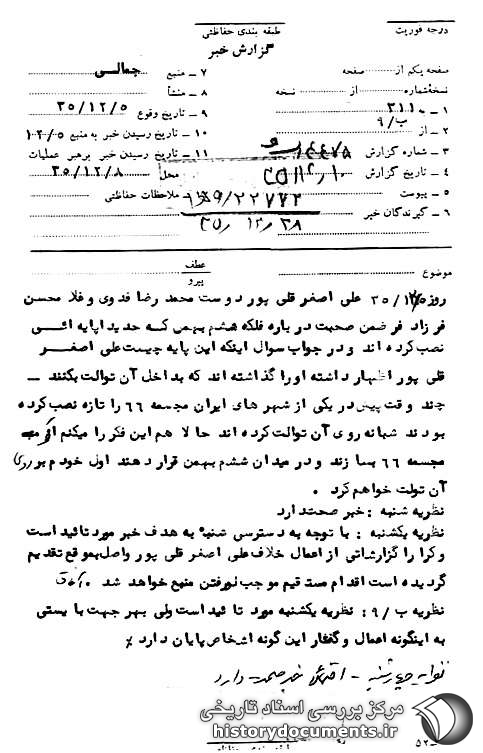 درجه فوریت
طبقه بندی حفاظتی
گزارش خبر
صفحه یکم از صفحه
نسخه شماره از نسخه
۱ – به ۳۱۱
۲ – از ۹/ب
۳ – شماره گزارش
۴ – تاریخ گزارش
۵ – پیوست
۶ – گیرندگان خبر
۷ – منبع جمالی
۸ – منشأ
۹ – تاریخ وقوع ۳۵/۱۲/۵
۱۰ – تاریخ رسیدن خبر به منبع
۱۱ – تاریخ رسیدن خبر برهبر عملیات
محل ۳۵/۱۲/۸
ملاحظات حفاظتی
۱۵۹/۲۲۷۷۲
۳۵/۱۲/۲۸
موضوع
عطف
پیرو
روز ۳۵/۱۲/۵ علی اصغر قلی پور دوست محمد رضا فدوی و غلامحسن
فرزاد فر ضمن صحبت در باره فلکه هشم بهمن که جدیدا پایه ائی
نصب کرده اند و در جواب سوال اینکه این پایه چیست علی اصغر
قلی پور اظهار داشته اورا گذاشته اند که بداخل آن توالت بکنند –
چند وقت پیش در یکی از شهر های ایران مجسمه ۶۶ را تازه نصب کرده
بودند شبانه روی آن توالت کرده اند حالا هم این فکر را میکنم اگر
مجسمه ۶۶ بسازند و در میدان ششم بهمن قرار دهند اول خودم بر روی
آن تولت خواهم کرد .
نظریه شنبه : خبر صحت دارد
نظریه یکشنبه : با توجه به دسترسی شنبه به هدف خبر مورد تائید است
وکرا را گزارشاتی از اعمال خلاف علی اصغر قلی پور واصل بموقع تقدیم
گردیده است اقدام مستقیم موجب نورفتن منبع خواهد شد .
نظریه ۹/ب : نظریه یکشنبه مورد تائید است ولی بهر جهت بایستی
به اینگونه اعمال و گفتار این گونه اشخاص پایان داد ٪
نظریه چهارشنبه – خبر صحت دارد
مرکز بررسی اسناد تاریخی
historydocuments.ir